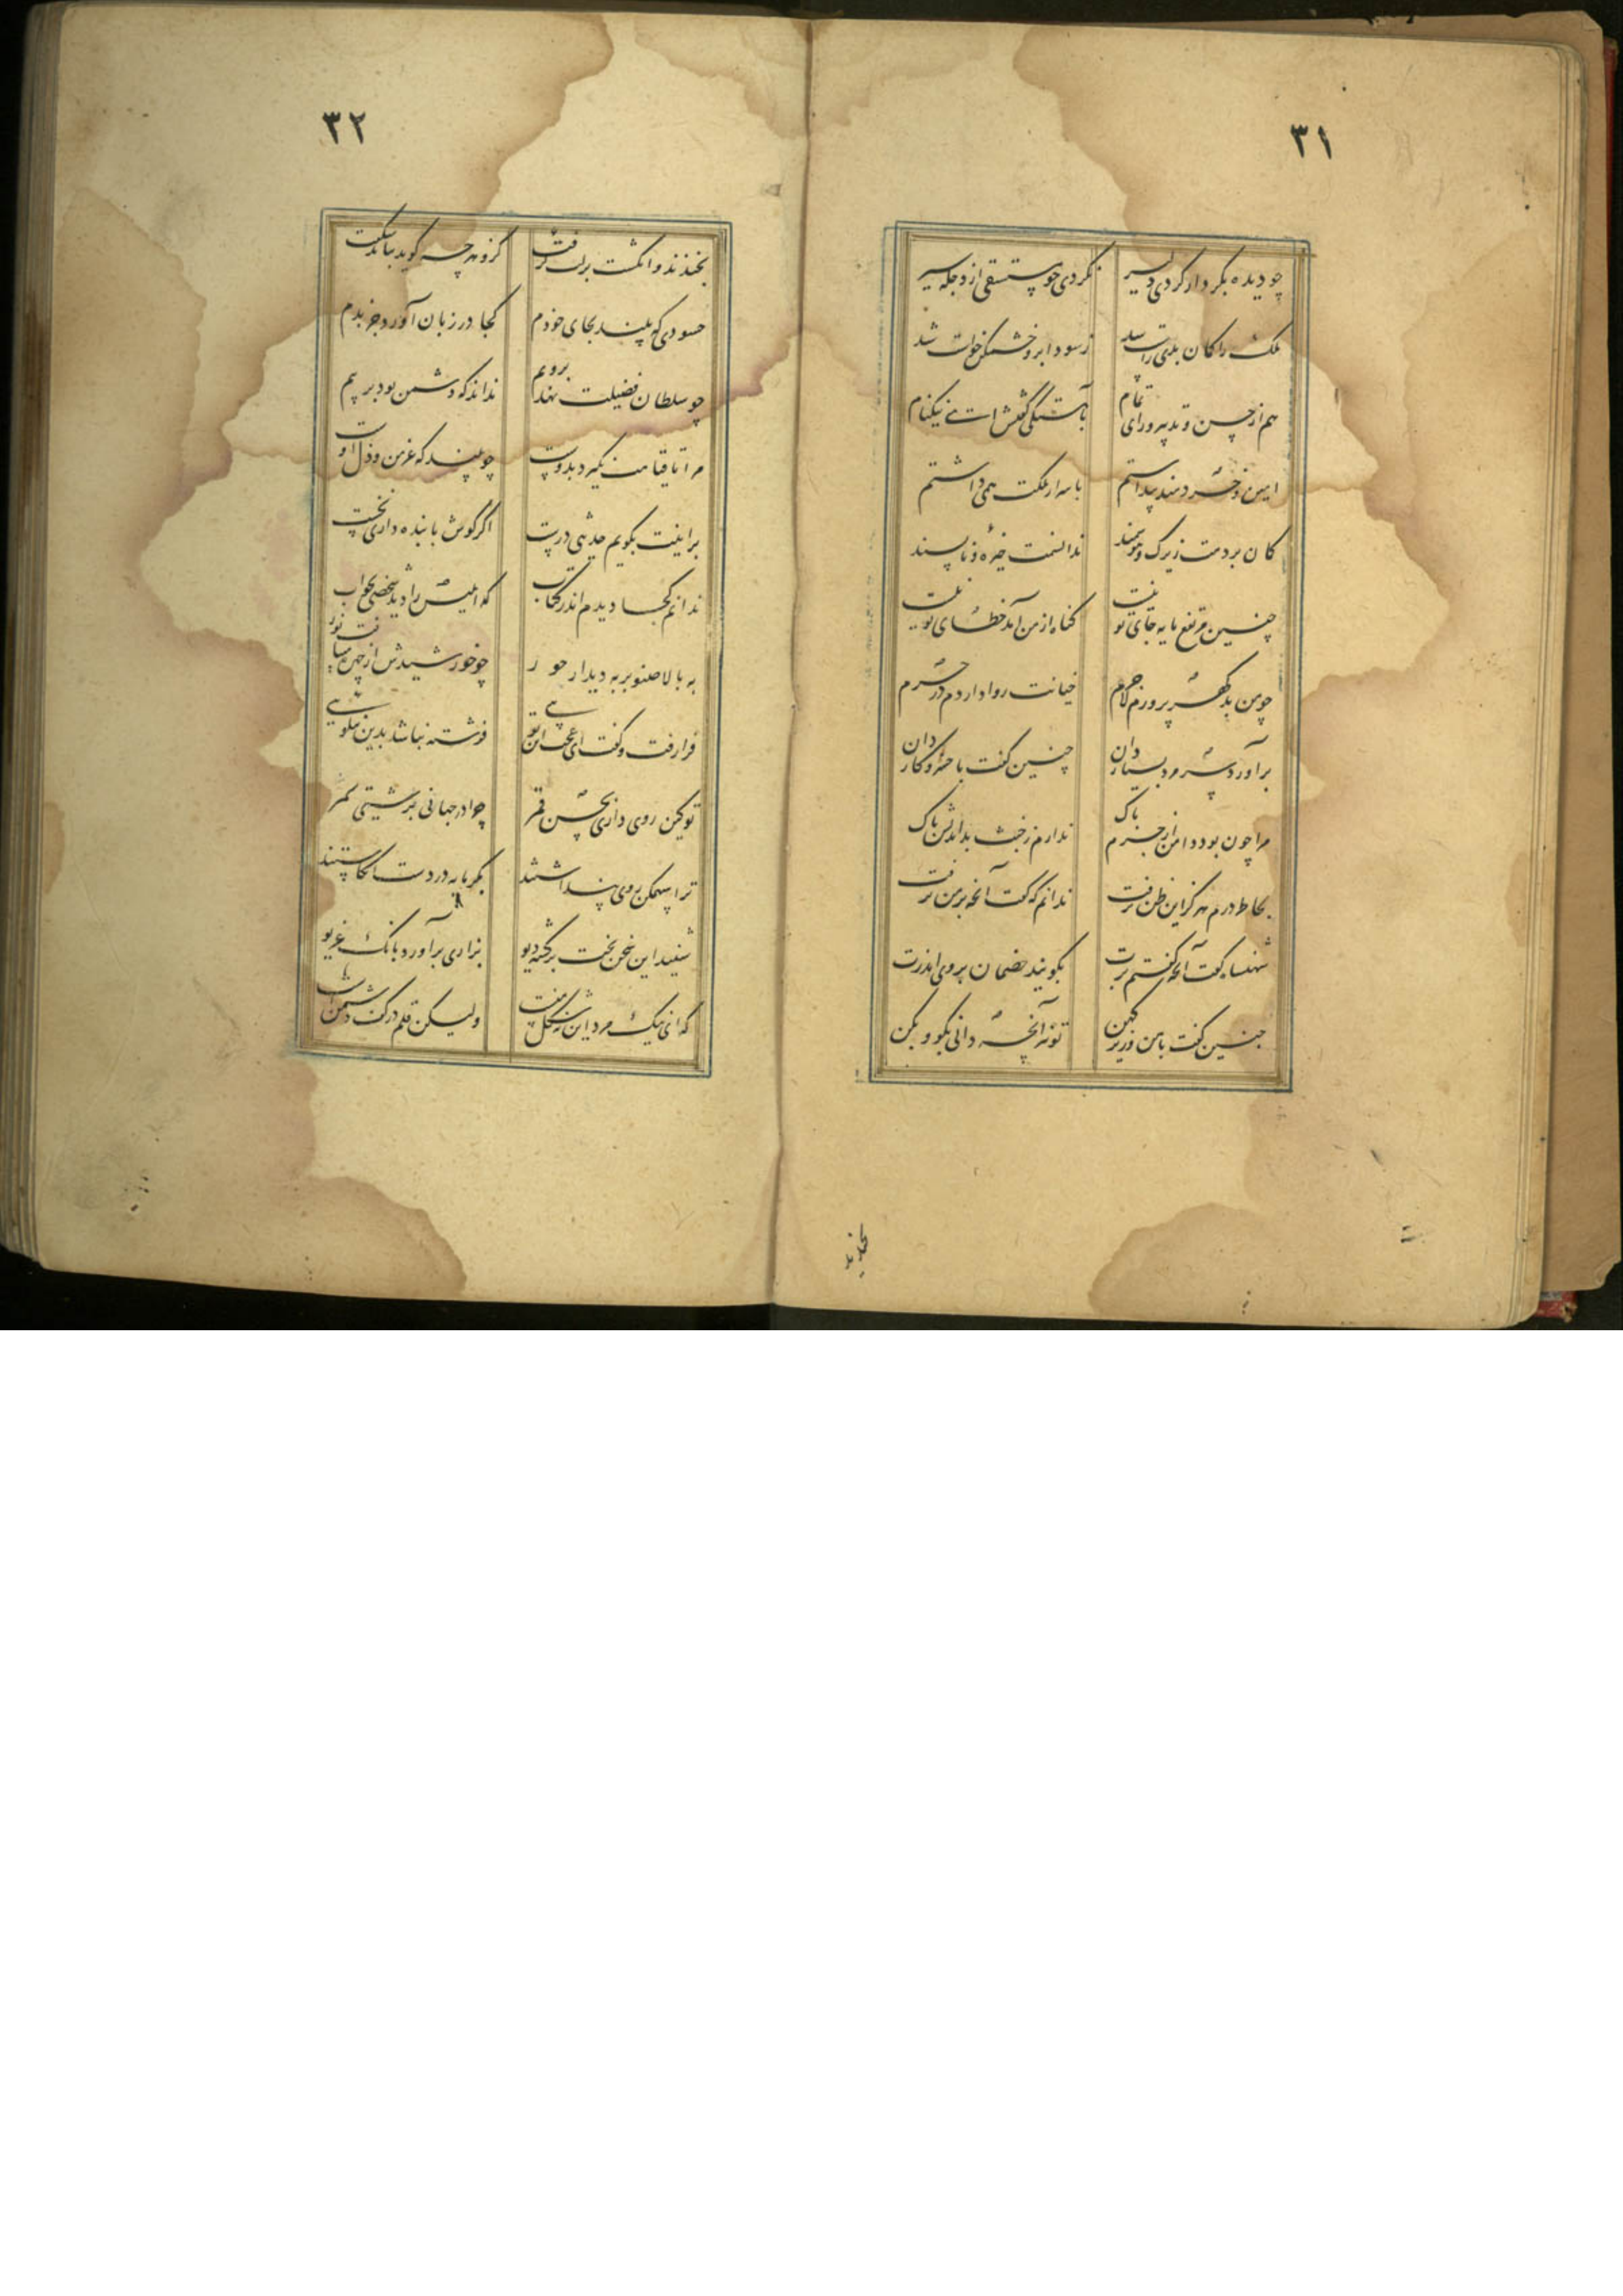 ٣١
چو دیده بکردار کردی دلیر نکردی چو مستسقی از دجله سیر
ملک را گمان بدی راست شد ز سودا برو خشمگین خواست شد
هم از حسن و تدبیر و رای تمام بآهستگی گفتش ای نیکنام
امین و خردمند پنداشتم باسرار ملکت همی داشتم
گمان بردمت زیرک و هوشمند ندانستمت خیره و ناپسند
چنین مرتفع مایه جای تو نیست گناه از من آمد خطای تو نیست
چو من بدگهر پرورم لاجرم خیانت روا داردم در حرم
برآورد سر مرد بسیاردان چنین گفت با خسرو کاردان
مرا چون بود دامن از جرم پاک ندارم ز خبث بداندیش باک
بخاطر درم هرگز این ظن نرفت ندانم که گفت آنچه بر من نرفت
شهنشاه گفت آنچه گفتم برت بگویند خصمان بروی اندرت
چنین گفت با من وزیر کهن تو نیز آنچه دانی بگو و بکن
بخندید
٣٢
بخندید و انگشت بر لب گرفت کزو هرچه گوید نباشد شگفت
حسودی که بیند بجای خودم کجا در زبان آورد جز بدم
چو سلطان فضیلت نهد برویم نداند که دشمن بود در پیم
مرا تا قیامت نگیرد بدوست چو بیند که عز من و ذل اوست
براینت بگویم حدیثی درست اگر گوش با بنده داری نخست
ندانم کجا دیدم اندر کتاب که ابلیس را دید شخصی بخواب
به بالا صنوبر به دیدار حور چو خورشیدش از چهره میتافت نور
فرا رفت و گفت ای عجب این توئی فرشته نباشد بدین نیکوئی
تو کین روی داری بحسن قمر چرا در جهانی بزشتی سمر
ترا سهمگین روی پنداشتند بگرمابه در زشت بنگاشتند
شنید این سخن بخت برگشته دیو بزاری برآورد بانگ غریو
که ای نیک مرد این نه شکل منست ولیکن قلم در کف دشمنست